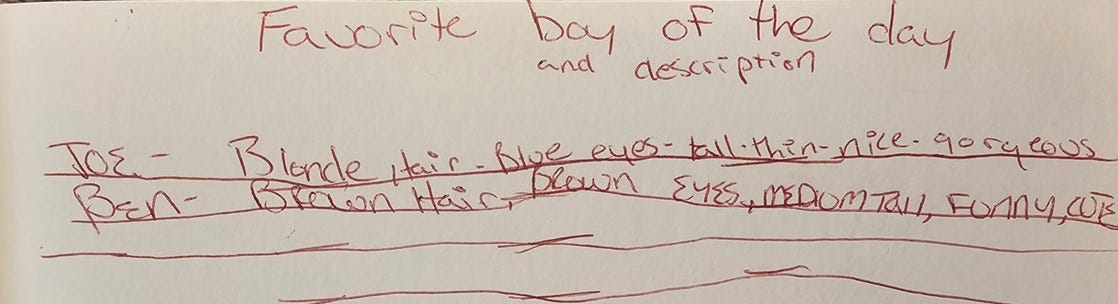 Favorite boy of the day
and description
JOE - Blonde Hair - Blue eyes - tall - thin - nice - gorgeous
BEN - Brown Hair, brown EYES, MEDIOM TALL, FUNNY, CUTE